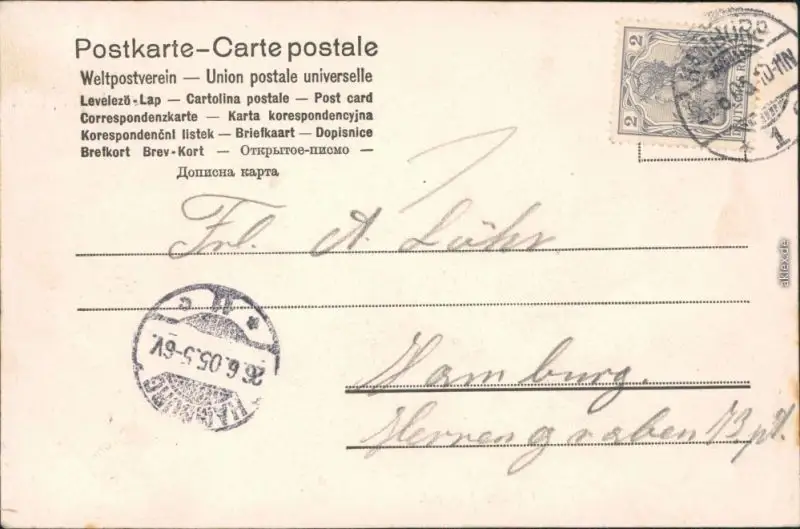 Postkarte–Carte postale
Weltpostverein — Union postale universelle
Levelezö-Lap — Cartolina postale — Post card
Correspondenzkarte — Karta korespondencyjna
Korespondenční listek — Briefkaart — Dopisnice
Brefkort Brev-Kort — Открытое-письмо —
Дописна карта
2 2
DEUTSCHES
HAMBURG
10-11N
* 1
Frl. A. Löhr
Hamburg.
Herrengraben 13 pt.
HAMBURG
26.6.05.5-6V.
* 11 c
akpool.de